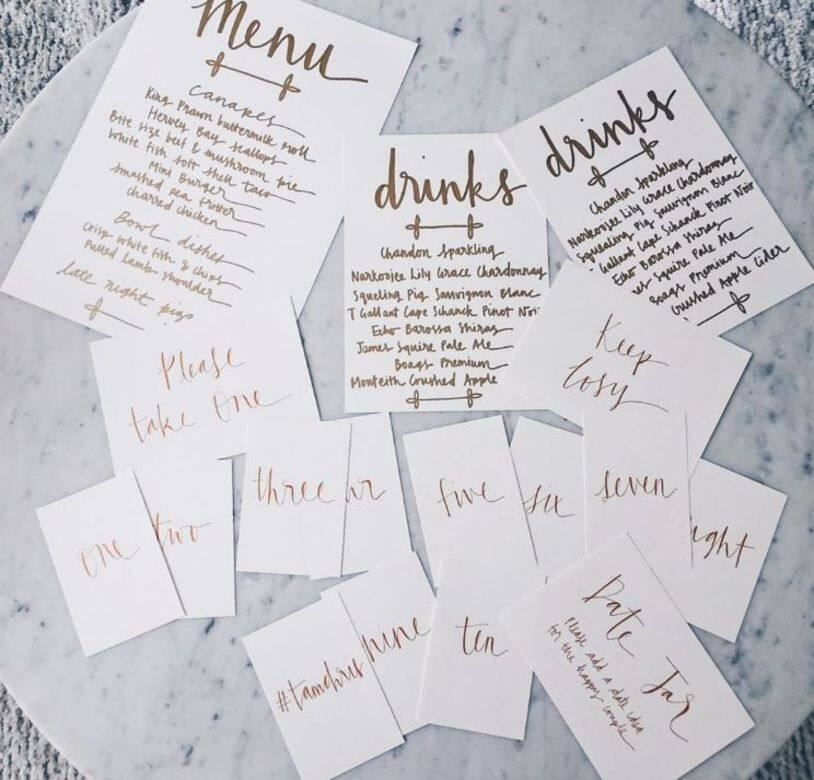 Menu
canapes
King Prawn buttermilk roll
Hervey Bay scallops
Bite size beef & mushroom pie
white fish soft shell taco
Mini Burger
smashed pea
charred chicken
Bowl dishes
crisp white fish & chips
Pulled lamb shoulder
late night
drinks
Chandon Sparkling
Narkoojee Lily Grace Chardonnay
Squeling Pig Sauvignon Blanc
T Gallant Cape Schanck Pinot Noi
Echo Barossa Shiraz
James Squire Pale Ale
Boags Premium
Monteith Crushed Apple
drinks
Chandon Sparkling
Narkoojee Lily Grace Chardonnay
Squealing Pig Sauvignon Blanc
Gallant Cape Schanck Pinot Noir
Echo Barossa Shiraz
es Squire Pale Ale
Boags Premium
Crushed Apple Cider
Please
take One
Keep
Cosy
one
two
three
ur
five
six
seven
ight
#tamchris
nine
ten
Date Jar
Please add a date idea
for the happy couple